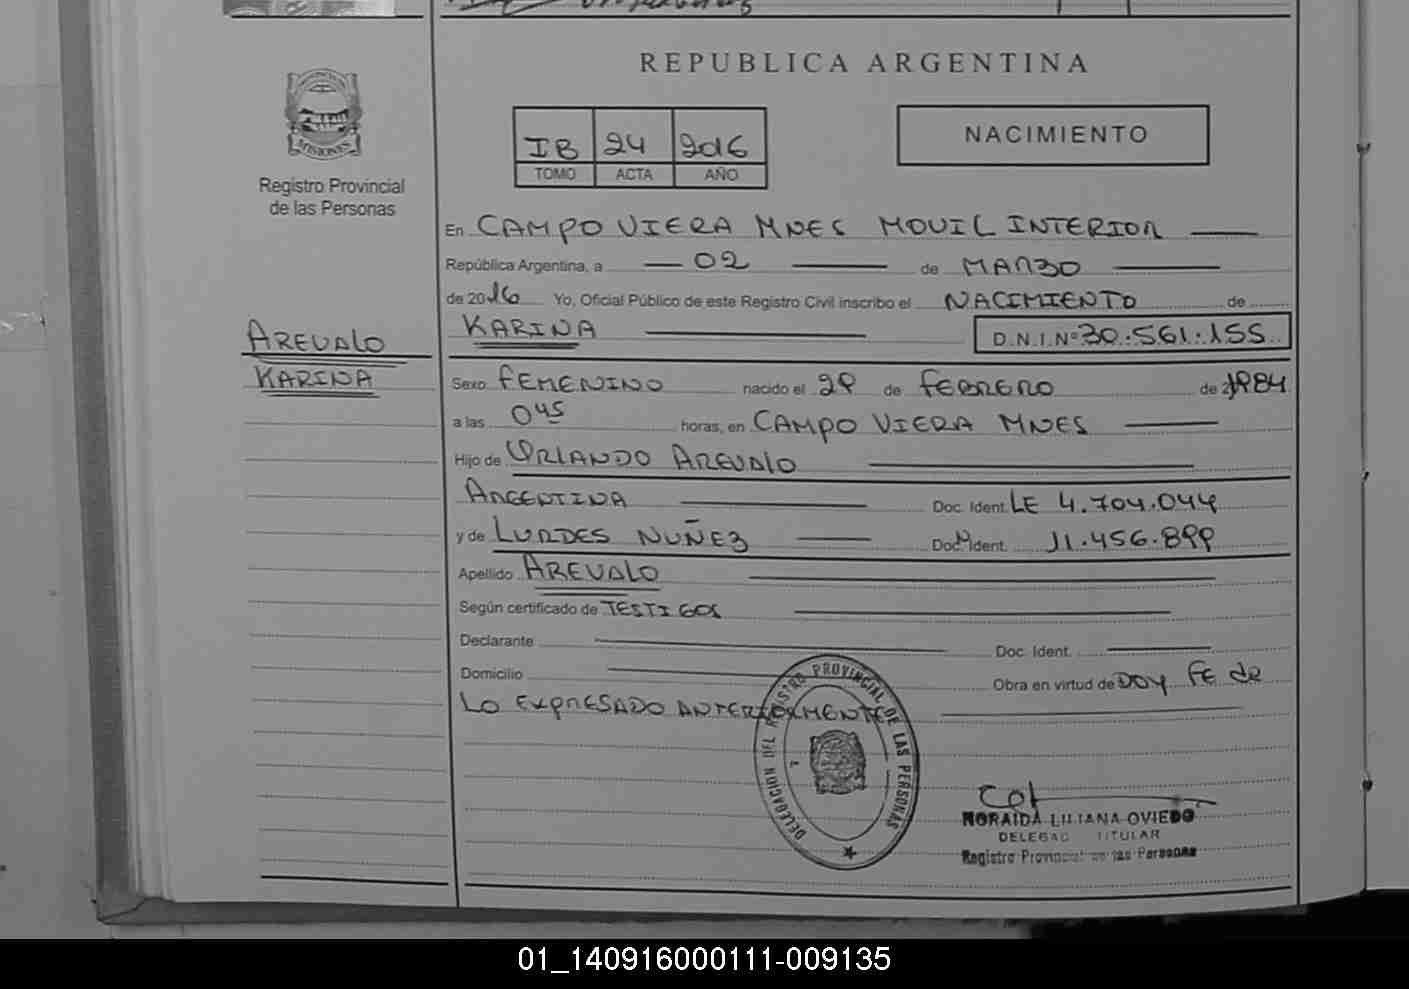 REPUBLICA ARGENTINA
MISIONES
Registro Provincial
de las Personas
IB 24 2016
TOMO ACTA AÑO
NACIMIENTO
En CAMPO VIERA MNES MOVIL INTERIOR
República Argentina, a 02 de MARZO
de 2016 Yo, Oficial Público de este Registro Civil inscribo el NACIMIENTO de
KARINA D.N.I.Nº 30.561.155
AREVALO
KARINA
Sexo FEMENINO nacido el 29 de FEBRERO de 1984
a las 045 horas, en CAMPO VIERA MNES
Hijo de ORLANDO AREVALO
ARGENTINA Doc. Ident. LE 4.704.044
y de LURDES NUÑEZ Doc. Ident. 11.456.899
Apellido AREVALO
Según certificado de TESTIGOS
Declarante Doc. Ident.
Domicilio Obra en virtud de DOY FE de
LO EXPRESADO ANTERIORMENTE
DELEGACION DEL REGISTRO PROVINCIAL DE LAS PERSONAS
NORAIDA LILIANA OVIEDO
TITULAR
Registro Provincial de las Personas
01_140916000111-009135